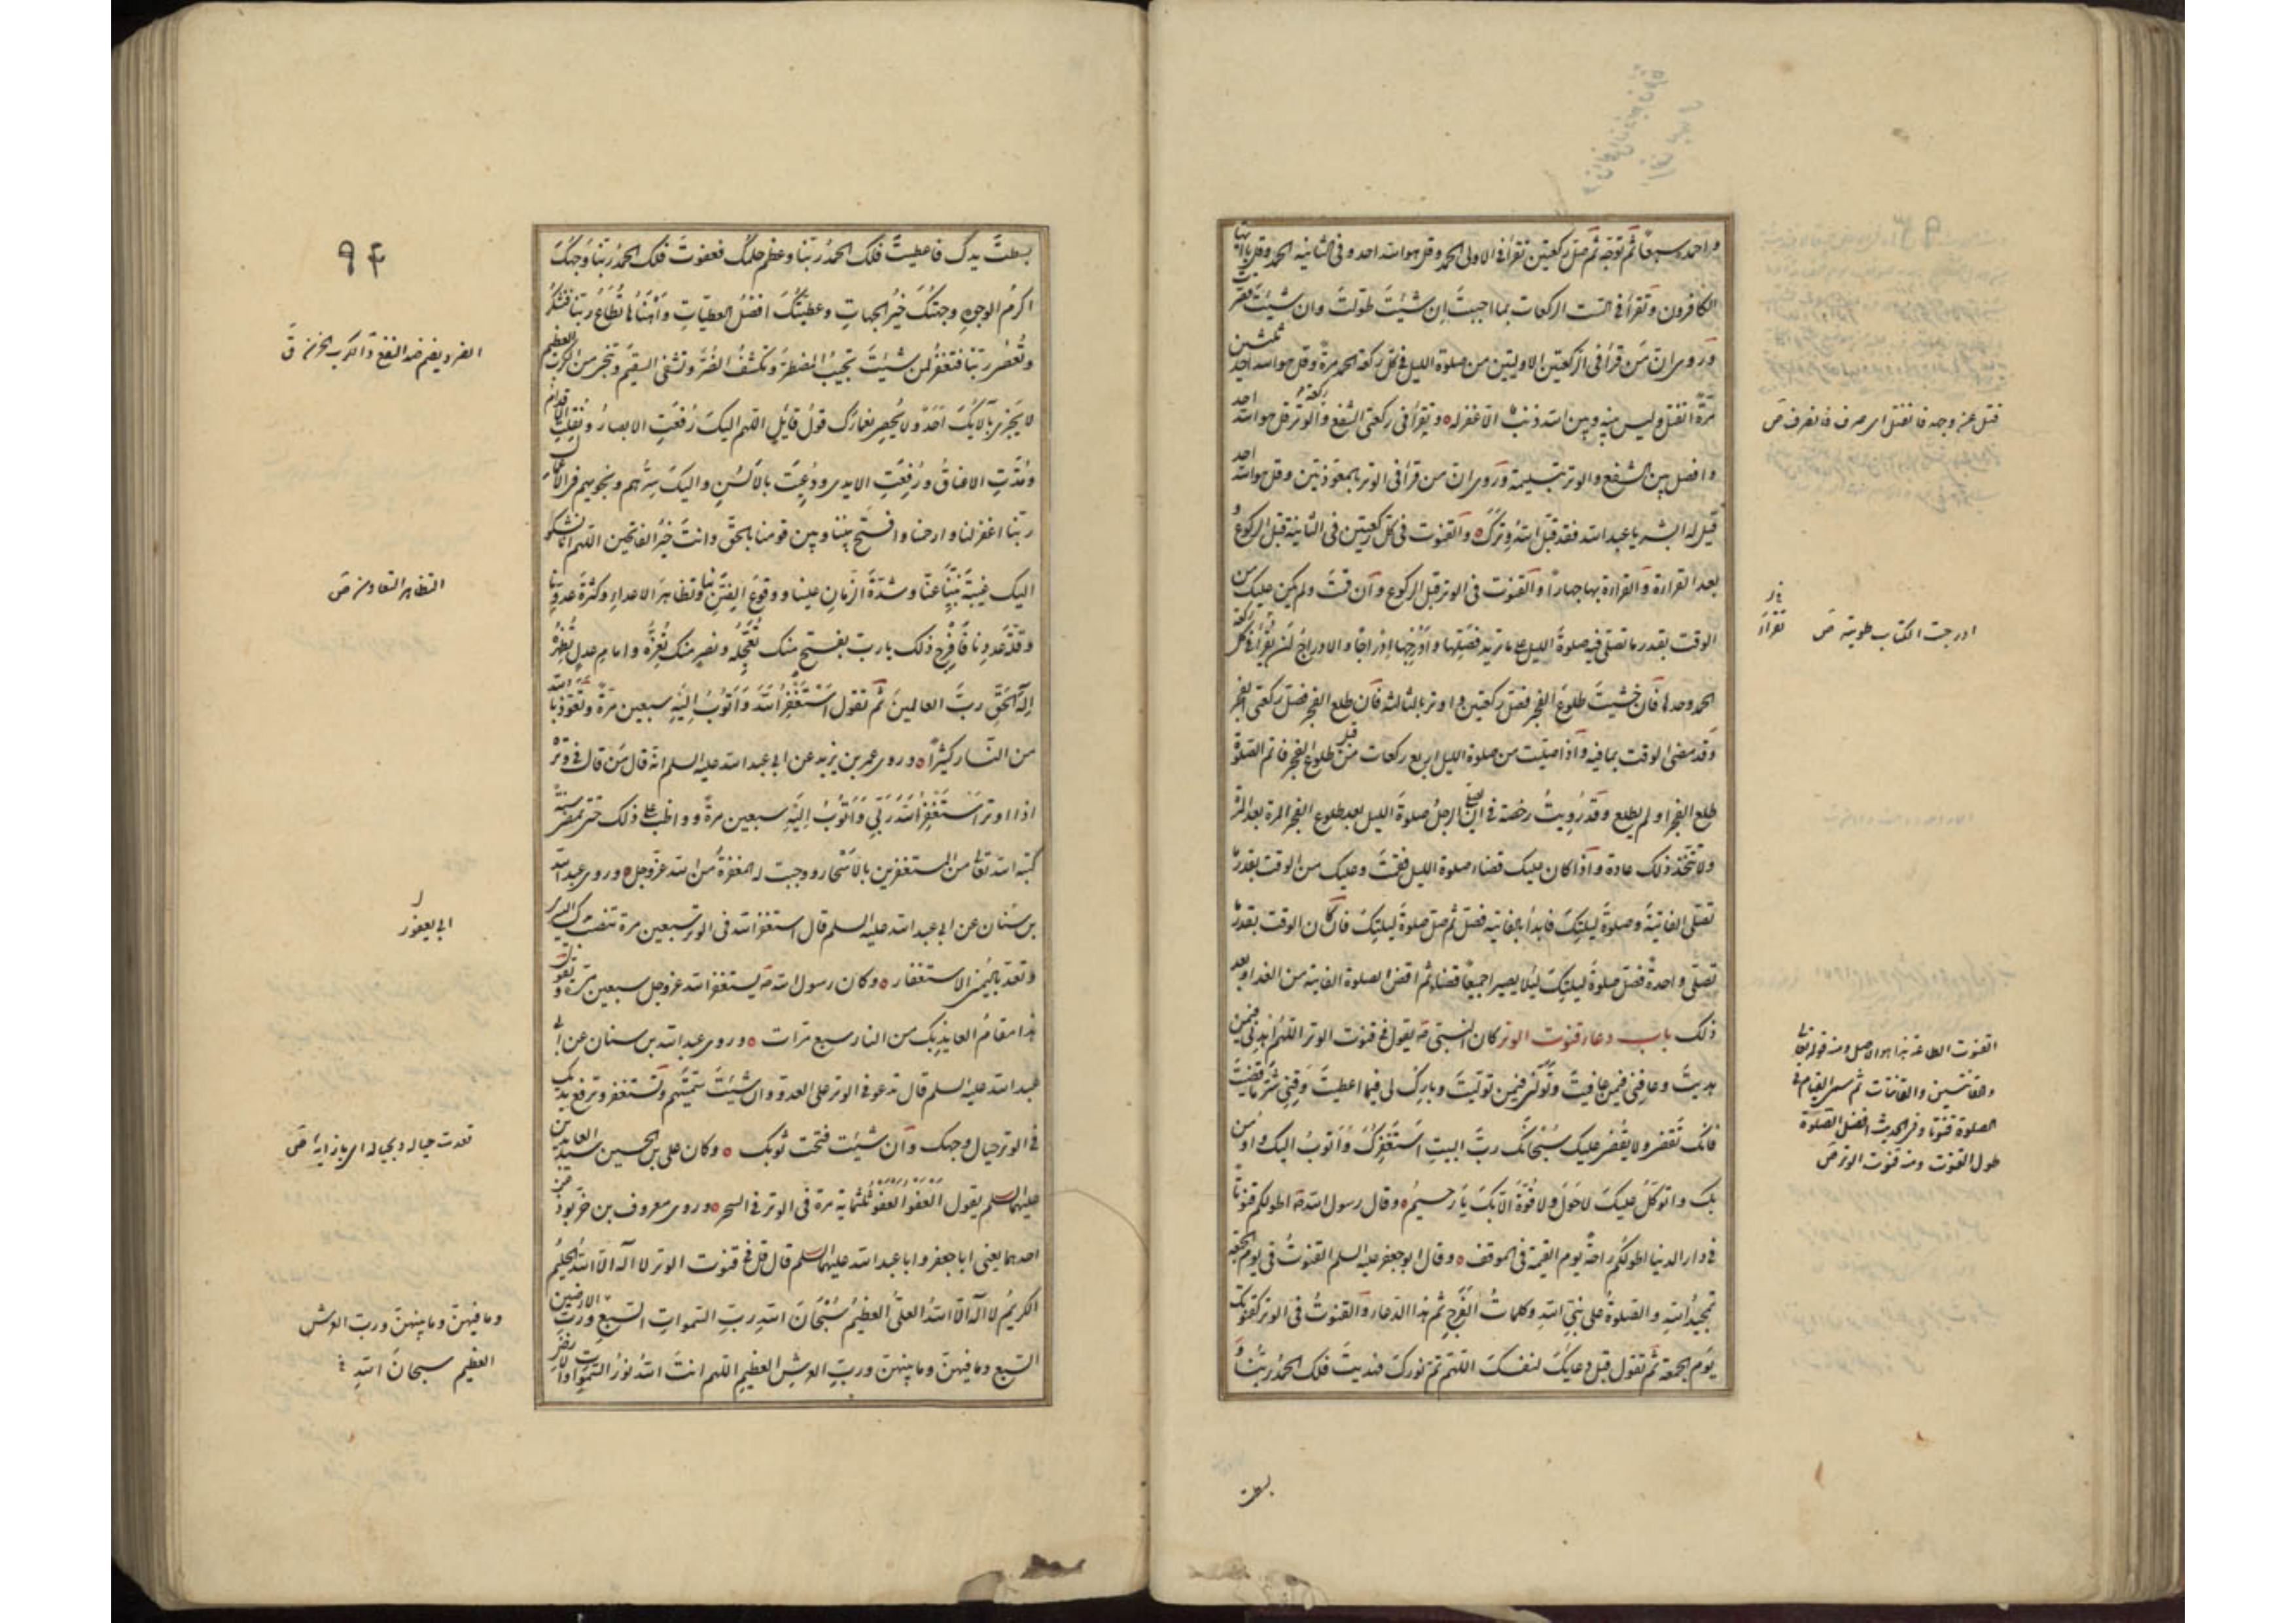 واحد سبعا ثم توجه ثم صل ركعتين تقرأ فى الاولى الحمد وقل هو الله احد وفى الثانيه الحمد وقل يا ايها
الكافرون وتقرأ فى الست الركعات بما احببت ان شئيت طولت وان شئيت قصرت
وروى ان من قرأ فى الركعتين الاوليتين من صلوة الليل فى كل ركعة الحمد مرة وقل هو الله احد ثلثين
مرة انفتل وليس بينه وبين الله ذنب الا غفر له ه ويقرأ فى ركعتى الشفع وركعة الوتر قل هو الله احد
وافصل بين الشفع والوتر بتسليمة وروى ان من قرأ فى الوتر بالمعوذتين وقل هو الله احد
قيل له ابشر يا عبد الله فقد قبل الله وترك ه والقنوت فى كل ركعتين فى الثانية قبل الركوع و
بعد القراءة والقراءة بها جهارا والقنوت فى الوتر قبل الركوع وان قمت ولم يكن عليك من
الوقت بقدر ما تصلى فيه صلوة الليل على ما تريد فصلها وادرجها ادراجا والادراج ان يقرأ فى كل ركعة
الحمد وحدها فان خشيت طلوع الفجر فصل ركعتين واوتر بالثالثه فان طلع الفجر فصل ركعتى الفجر
وقد مضى الوقت بما فيه واذا صليت من صلوة الليل اربع ركعات من قبل طلوع الفجر فاتم الصلوة
طلع الفجر او لم يطلع وقد رويت رخصة فى ان يصلى الرجل صلوة الليل بعد طلوع الفجر المرة بعد المرة
ولا تتخذ ذلك عادة واذا كان عليك قضاء صلوة الليل فقمت وعليك من الوقت بقدر ما
تصلى الفاتية وصلوة ليلتك فابدأ بالفايته فصل ثم صل صلوة ليلتك فان كان الوقت بقدر ما
تصلى واحدة فصل صلوة ليلتك ليلا يصيرا جميعا قضاء ثم اقض الصلوة الفايته من الغد او بعد
ذلك باب دعاء قنوت الوتر كان النبى صه يقول فى قنوت الوتر اللهم اهدنى فيمن
هديت وعافنى فيمن عافيت وتولنى فيمن توليت وبارك لى فيما اعطيت وقنى شر ما قضيت
فانك تقضى ولا يقضى عليك سبحانك رب البيت استغفرك واتوب اليك واومن
بك واتوكل عليك لا حول ولا قوة الا بك يا رحيم ه وقال رسول الله صه اطولكم قنوتا
فى دار الدنيا اطولكم راحة يوم القيمة فى الموقف ه وقال ابو جعفر عليه السلم القنوت فى يوم الجمعة
تمجيد الله والصلوة على نبى الله وكلمات الفرج ثم هذا الدعاء والقنوت فى الوتر كقنوتك
يوم الجمعة ثم تقول قبل دعايك لنفسك اللهم تم نورك فهديت فلك الحمد ربنا و
بسطت
فتل عنه وجهه فانفتل اى صرف فانصرف ص
ادرجت الكتاب طويته ص
تقرأ
القنوت الطاعة هذا هو الاصل ومنه قوله تعالى
والقانتين والقانتات ثم سمى القيام فى
الصلوة قنوتا وفى الحديث افضل الصلوة
طول القنوت ومنه قنوت الوتر ص
٩۴
بسطت يدك فاعطيت فلك الحمد ربنا وعظم حلمك فعفوت فلك الحمد ربنا وجهك
اكرم الوجوه وجهتك خير الجهات وعطيتك افضل العطيات واهنأها تطاع ربنا فتشكر
وتعصى ربنا فتغفر لمن شئيت تجيب المضطر وتكشف الضر وتشفى السقيم وتنجى من الكرب العظيم
لا يجزى بآلائك احد ولا يحصى نعمائك قول قايل اللهم اليك رفعت الابصار ونقلت الاقدام
ومدت الاعناق ورفعت الايدى ودعيت بالالسن واليك سرهم ونجويهم فى الاعمال
ربنا اغفر لنا وارحمنا وافتح بيننا وبين قومنا بالحق وانت خير الفاتحين اللهم انا نشكو
اليك غيبة نبينا عنا وشدة الزمان علينا ووقوع الفتن بنا وتظاهر الاعداء وكثرة عدونا
وقلة عددنا فافرج ذلك يا رب بفتح منك تعجله ونصر منك تعزه وامام عدل تظهره
اله الحق رب العالمين ثم تقول استغفر الله واتوب اليه سبعين مرة وتعوذ بالله
من النار كثيرا ه وروى عمر بن يزيد عن ابى عبد الله عليه السلم انه قال من قال فى وتره
اذا اوتر استغفر الله ربى واتوب اليه سبعين مرة وواظب على ذلك حتى تمضى سنة
كتبه الله تعالى من المستغفرين بالاسحار ووجبت له المغفرة من الله عز وجل ه وروى عبد الله
بن سنان عن ابى عبد الله عليه السلم قال استغفر الله فى الوتر سبعين مرة تنصب يدك اليسرى
وتعد باليمنى الاستغفار ه وكان رسول الله صه يستغفر الله عز وجل سبعين مرة ويقول
هذا مقام العايذ بك من النار سبع مرات ه وروى عبد الله بن سنان عن ابى
عبد الله عليه السلم قال تدعو فى الوتر على العدو وان شئيت سميتهم وتستغفر وترفع يديك
فى الوتر حيال وجهك وان شئيت فتحت ثوبك ه وكان على بن الحسين سيد العابدين
عليهما السلم يقول العفو العفو ثلثماية مرة فى الوتر فى السحر ه وروى معروف بن خربوذ عن
احدهما يعنى ابا جعفر وابا عبد الله عليهما السلم قال قل فى قنوت الوتر لا اله الا الله الحليم
الكريم لا اله الا الله العلى العظيم سبحان الله رب السموات السبع ورب الارضين
السبع وما فيهن وما بينهن ورب العرش العظيم اللهم انت الله نور السموات والارض
الضر ويضم ضد النفع والكرب الحزن ق
التظاهر التعاون ص
ابى يعفور
قعدت حياله وبحياله اى بازايه ص
وما فيهن وما بينهن ورب العرش
العظيم سبحان الله